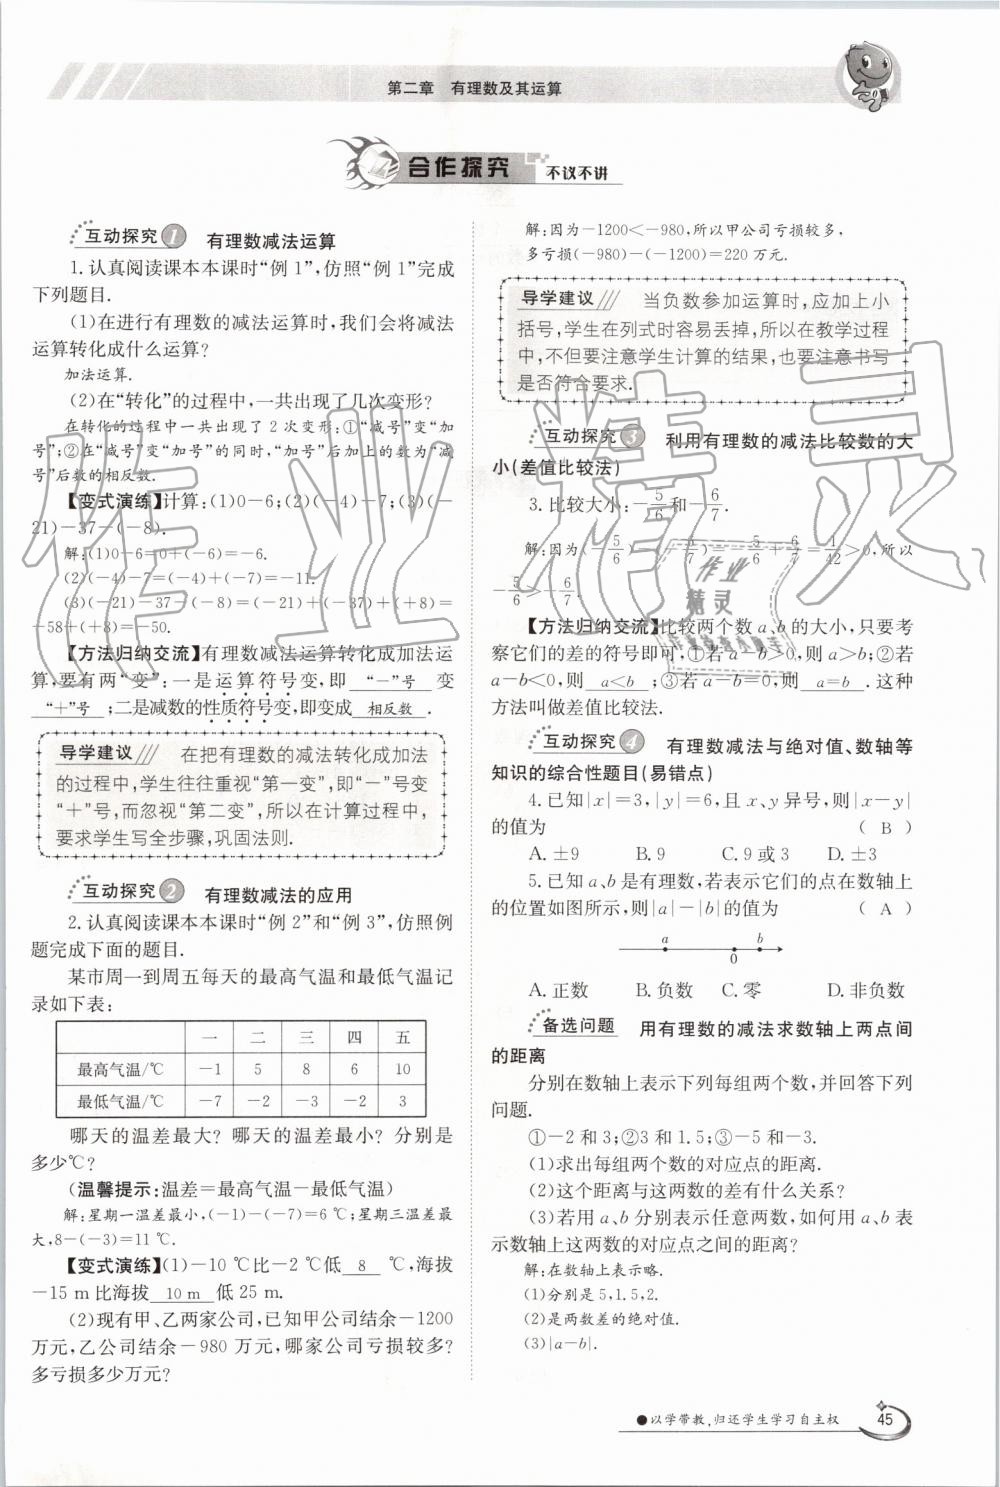 第二章 有理数及其运算
合作探究 不议不讲
互动探究1 有理数减法运算
1.认真阅读课本本课时“例1”,仿照“例1”完成
下列题目.
(1)在进行有理数的减法运算时,我们会将减法
运算转化成什么运算?
加法运算.
(2)在“转化”的过程中,一共出现了几次变形?
在转化的过程中一共出现了2次变形:①“减号”变“加
号”;②在“减号”变“加号”的同时,“加号”后加上的数为“减
号”后数的相反数.
【变式演练】计算:(1)0-6;(2)(-4)-7;(3)(-
21)-37-(-8).
解:(1)0-6=0+(-6)=-6.
(2)(-4)-7=(-4)+(-7)=-11.
(3)(-21)-37-(-8)=(-21)+(-37)+(+8)=
-58+(+8)=-50.
【方法归纳交流】有理数减法运算转化成加法运
算,要有两“变”:一是运算符号变,即 “-”号 变
“+”号 ;二是减数的性质符号变,即变成 相反数 .
导学建议 在把有理数的减法转化成加法
的过程中,学生往往重视“第一变”,即“-”号变
“+”号,而忽视“第二变”,所以在计算过程中,
要求学生写全步骤,巩固法则.
互动探究2 有理数减法的应用
2.认真阅读课本本课时“例2”和“例3”,仿照例
题完成下面的题目.
某市周一到周五每天的最高气温和最低气温记
录如下表:
一 二 三 四 五
最高气温/℃ -1 5 8 6 10
最低气温/℃ -7 -2 -3 -2 3
哪天的温差最大?哪天的温差最小?分别是
多少℃?
(温馨提示:温差=最高气温-最低气温)
解:星期一温差最小,(-1)-(-7)=6 ℃;星期三温差最
大,8-(-3)=11 ℃.
【变式演练】(1)-10 ℃比-2 ℃低 8 ℃,海拔
-15 m比海拔 10 m 低25 m.
(2)现有甲、乙两家公司,已知甲公司结余-1200
万元,乙公司结余-980万元,哪家公司亏损较多?
多亏损多少万元?
解:因为-1200<-980,所以甲公司亏损较多,
多亏损(-980)-(-1200)=220万元.
导学建议 当负数参加运算时,应加上小
括号,学生在列式时容易丢掉,所以在教学过程
中,不但要注意学生计算的结果,也要注意书写
是否符合要求.
互动探究3 利用有理数的减法比较数的大
小(差值比较法)
3.比较大小:-5/6和-6/7.
解:因为(-5/6)-(-6/7)=-5/6+6/7=1/42>0,所以
-5/6>-6/7.
【方法归纳交流】比较两个数a、b的大小,只要考
察它们的差的符号即可,①若a-b>0,则a>b;②若
a-b<0,则 a<b ;③若a-b=0,则 a=b .这种
方法叫做差值比较法.
互动探究4 有理数减法与绝对值、数轴等
知识的综合性题目(易错点)
4.已知|x|=3,|y|=6,且x、y异号,则|x-y|
的值为 ( B )
A.±9 B.9 C.9或3 D.±3
5.已知a、b是有理数,若表示它们的点在数轴上
的位置如图所示,则|a|-|b|的值为 ( A )
a 0 b
A.正数 B.负数 C.零 D.非负数
备选问题 用有理数的减法求数轴上两点间
的距离
分别在数轴上表示下列每组两个数,并回答下列
问题.
①-2和3;②3和1.5;③-5和-3.
(1)求出每组两个数的对应点的距离.
(2)这个距离与这两数的差有什么关系?
(3)若用a、b分别表示任意两数,如何用a、b表
示数轴上这两数的对应点之间的距离?
解:在数轴上表示略.
(1)分别是5,1.5,2.
(2)是两数差的绝对值.
(3)|a-b|.
●以学带教,归还学生学习自主权
45
作业精灵
作业
精灵